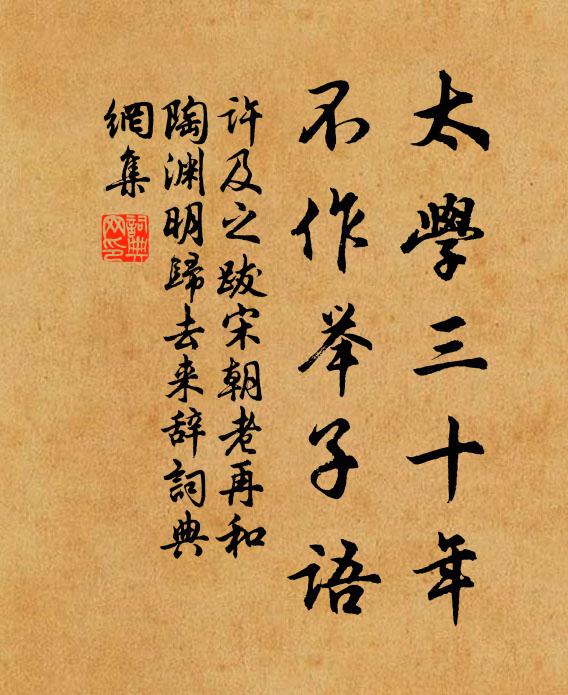 太學三十年
不作举子語
許及之跋宋朝老再和
陶渊明歸去来辞詞典
網集
詞典
网印